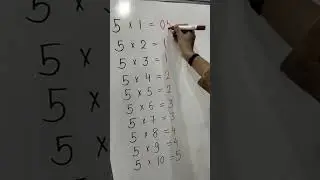 5 × 1 = 0
5 × 2 = 1
5 × 3 = 1
5 × 4 = 2
5 × 5 = 2
5 × 6 = 3
5 × 7 = 3
5 × 8 = 4
5 × 9 = 4
5 × 10 = 5